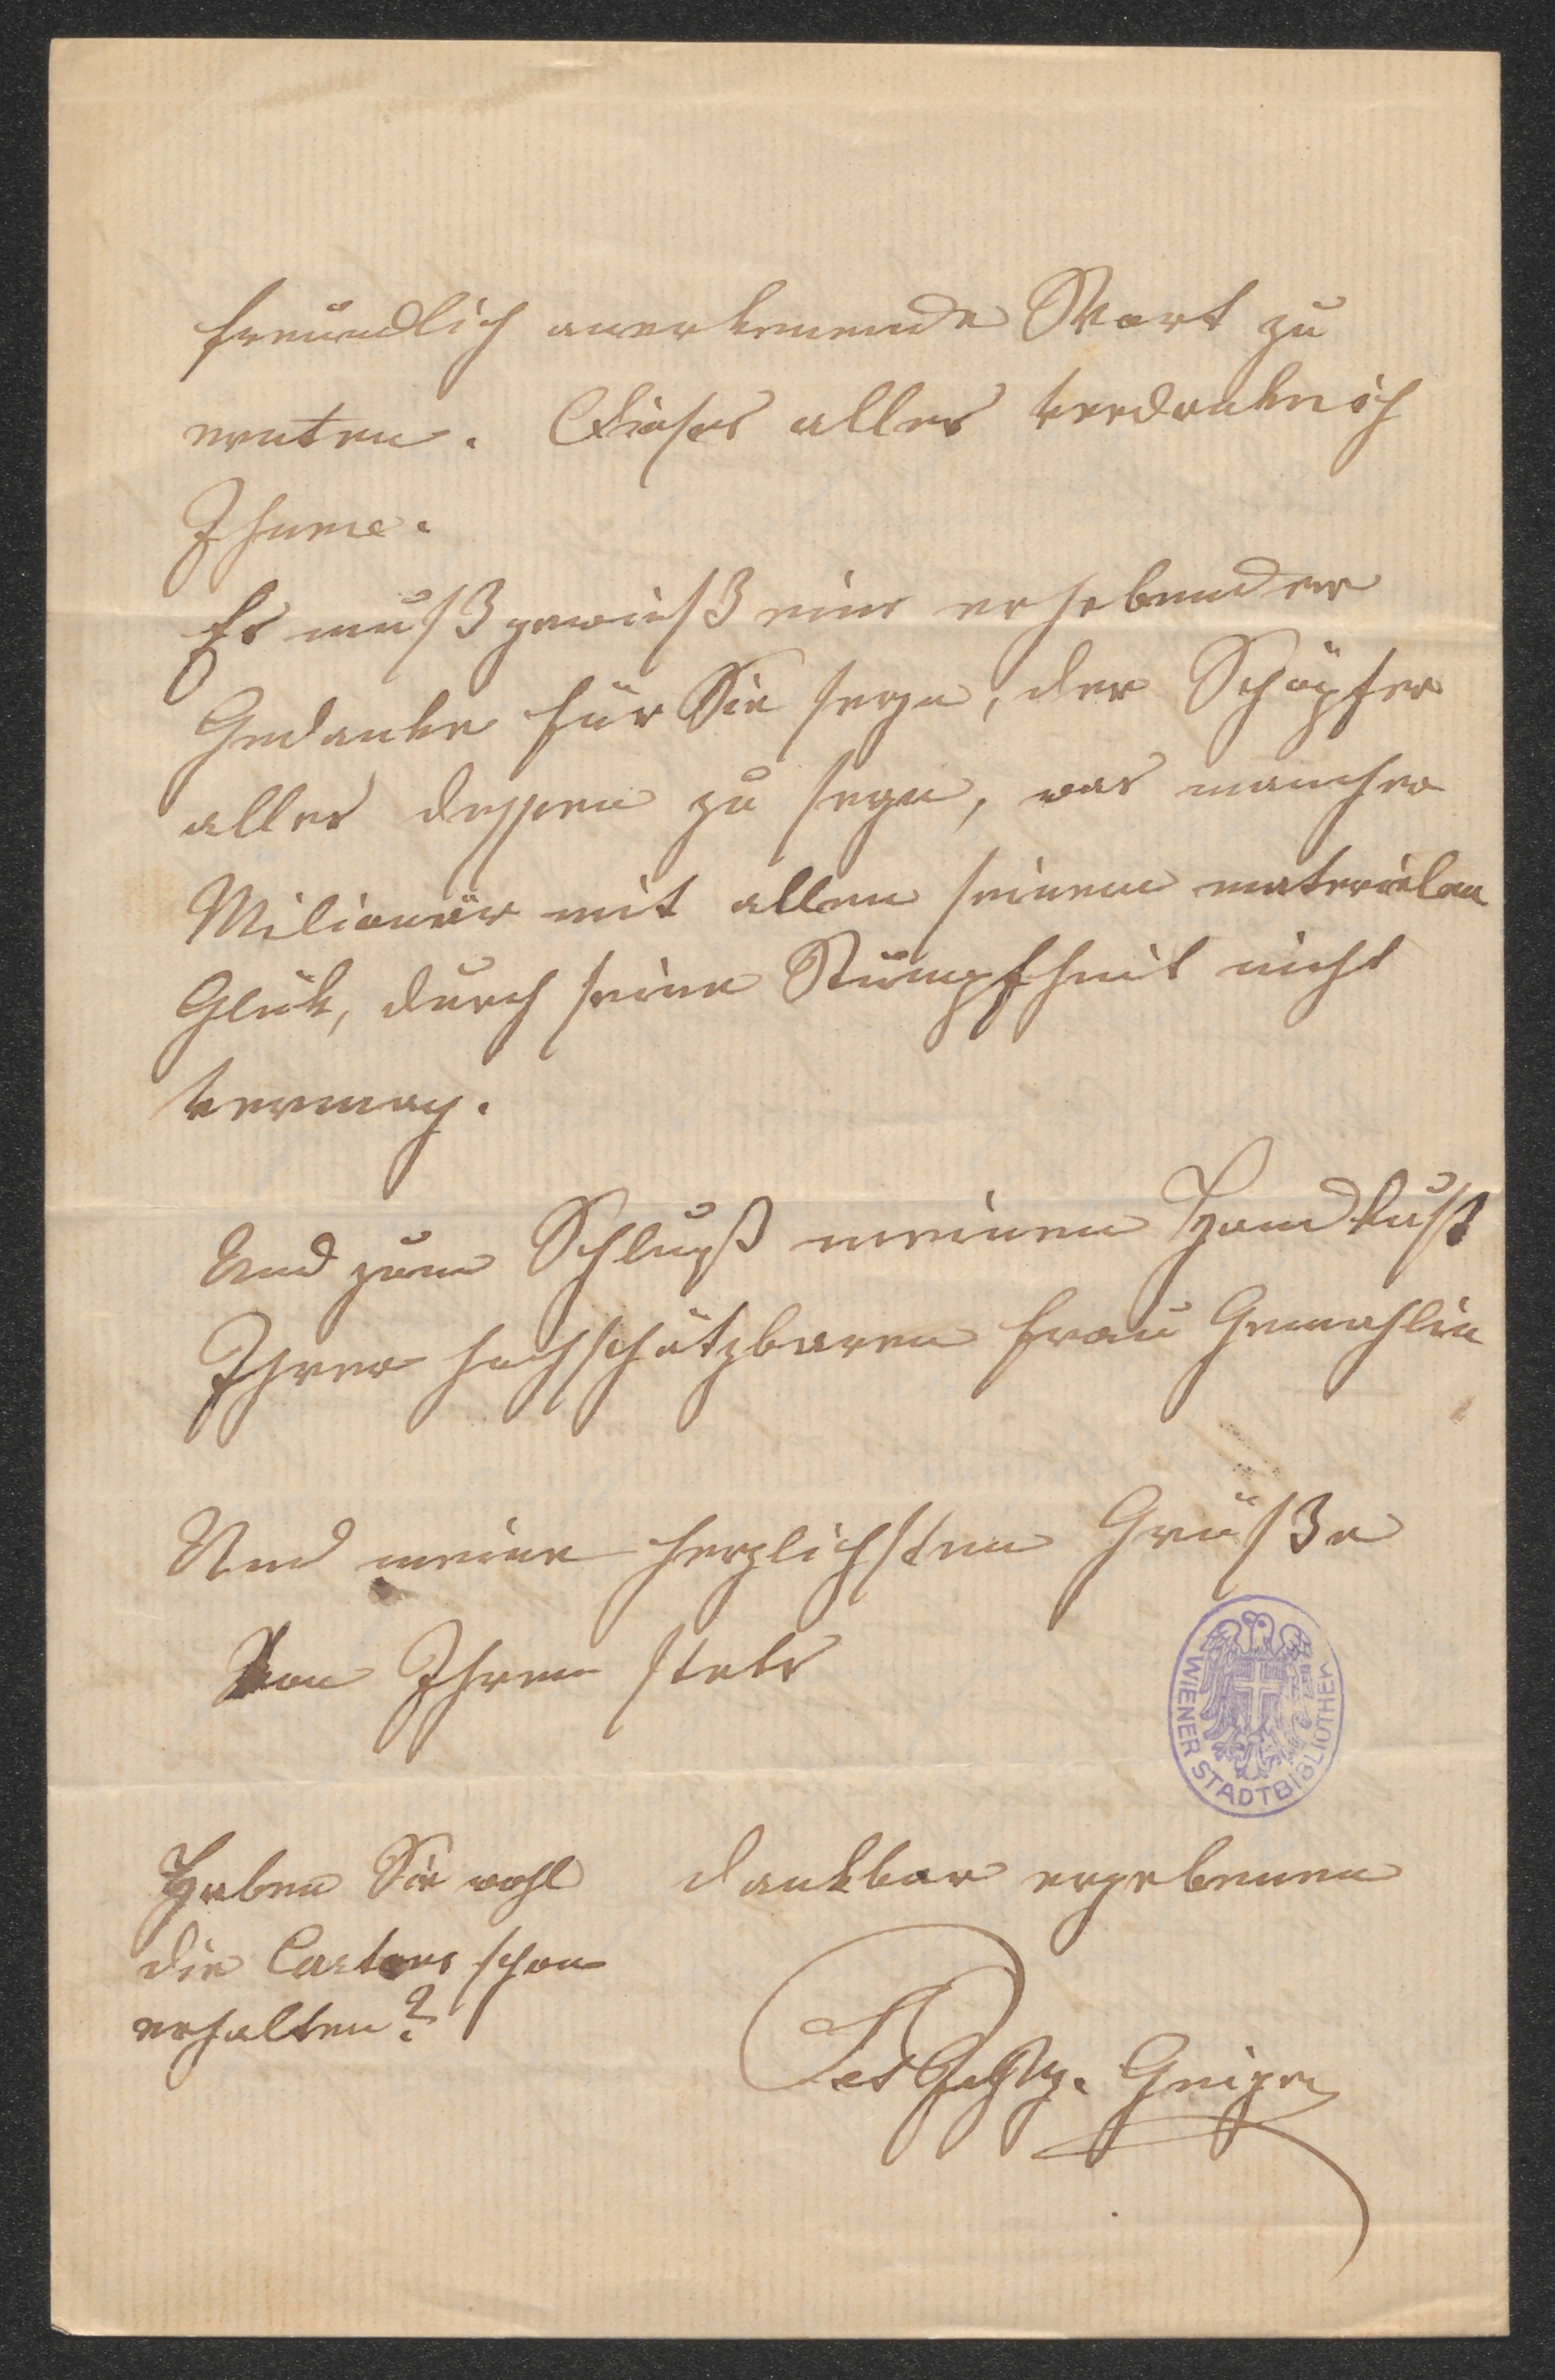 freundlich anerkenende Wort zu
ernten. Dieses alles verdanke ich
Ihnen.
Es muß gewieß ein erhebender
Gedanke für Sie seyn, der Schöpfer
alles dessen zu seyn, was mancher
Milionär mit allen seinem materielen
Glük, durch seine Stumpfheit nicht
vermag.
Und zum Schluß meinen Handkuß
Ihrer hochschätzbaren Frau Gemahlin
Und meine herzlichsten Grüße
Von Ihrem stets
dankbar ergebenen
Geiger
Haben Sie wohl
die Cartons schon
erhalten?
WIENER STADTBIBLIOTHEK